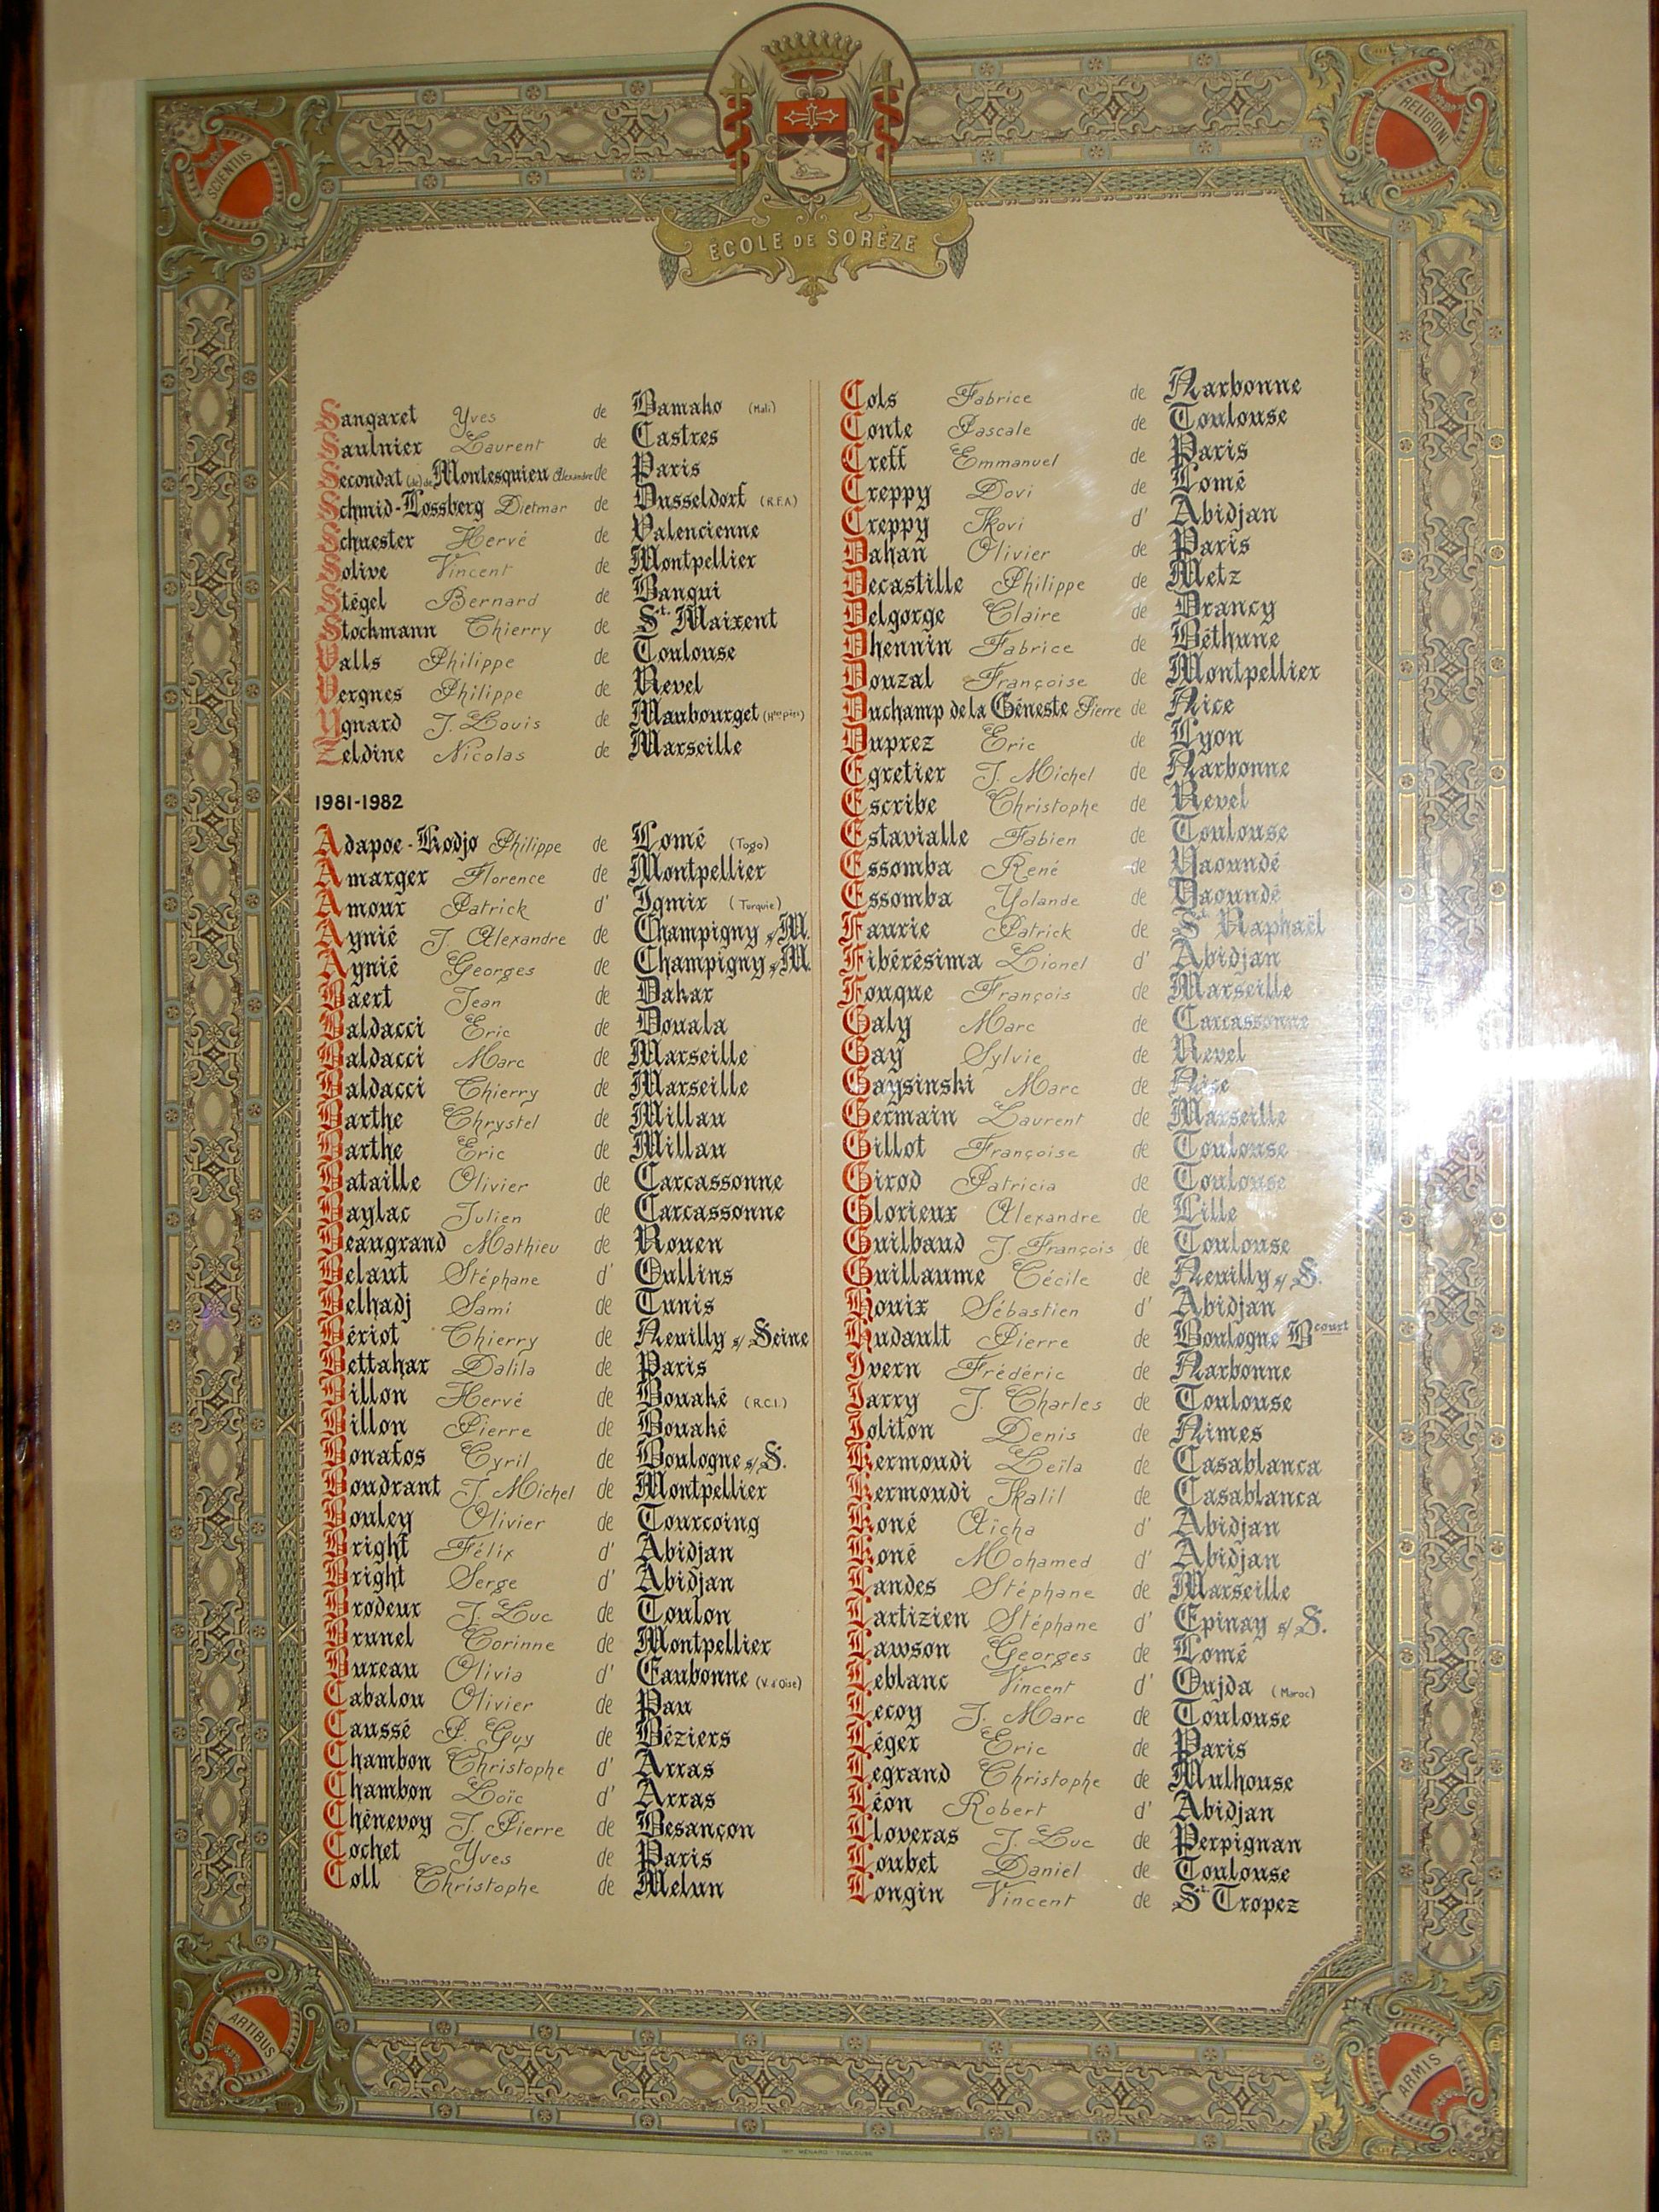 SCIENTIIS
RELIGIONI
ÉCOLE DE SORÈZE
Sangaret Yves de Bamako (Mali)
Saulnier Laurent de Castres
Secondat (de) de Montesquieu Alexandre de Paris
Schmid-Lossberg Dietmar de Dusseldorf (R.F.A.)
Schuester Hervé de Valencienne
Solive Vincent de Montpellier
Stégel Bernard de Bangui
Stockmann Thierry de St. Maixent
Valls Philippe de Toulouse
Vergnes Philippe de Revel
Ygnard J. Louis de Maubourget (Htes Pyr.)
Zeldine Nicolas de Marseille
1981-1982
Adapoe-Kodjo Philippe de Lomé (Togo)
Amarger Florence de Montpellier
Amour Patrick d' Igmir (Turquie)
Aynié J. Alexandre de Champigny s/M.
Aynié Georges de Champigny s/M.
Baert Jean de Dakar
Baldacci Eric de Douala
Baldacci Marc de Marseille
Baldacci Thierry de Marseille
Barthe Chrystel de Millau
Barthe Eric de Millau
Bataille Olivier de Carcassonne
Baylac Julien de Carcassonne
Beaugrand Mathieu de Rouen
Belaut Stéphane d' Oullins
Belhadj Sami de Tunis
Bériot Thierry de Neuilly s/Seine
Bettahar Dalila de Paris
Billon Hervé de Bouaké (R.C.I.)
Billon Pierre de Bouaké
Bonafos Cyril de Boulogne s/S.
Boudrant J. Michel de Montpellier
Bouley Olivier de Tourcoing
Bright Félix d' Abidjan
Bright Serge d' Abidjan
Brodeur J. Luc de Toulon
Brunel Corinne de Montpellier
Bureau Olivia d' Eaubonne (V. d'Oise)
Cabalou Olivier de Pau
Caussé P. Guy de Béziers
Chambon Christophe d' Arras
Chambon Loïc d' Arras
Chênevoy J. Pierre de Besançon
Cochet Yves de Paris
Coll Christophe de Melun
Cols Fabrice de Narbonne
Conte Pascale de Toulouse
Creff Emmanuel de Paris
Creppy Dovi de Lomé
Creppy Kovi d' Abidjan
Dahan Olivier de Paris
Decastille Philippe de Metz
Delgorge Claire de Drancy
Dhennin Fabrice de Béthune
Douzal Françoise de Montpellier
Duchamp de la Géneste Pierre de Nice
Duprez Eric de Lyon
Egretier J. Michel de Narbonne
Escribe Christophe de Revel
Estavialle Fabien de Toulouse
Essomba René de Yaoundé
Essomba Yolande de Yaoundé
Faurie Patrick de St. Raphaël
Fibérésima Lionel d' Abidjan
Fouque François de Marseille
Galy Marc de Carcassonne
Gay Sylvie de Revel
Gaysinski Marc de Nice
Germain Laurent de Marseille
Gillot Françoise de Toulouse
Girod Patricia de Toulouse
Glorieux Alexandre de Lille
Guilbaud J. François de Toulouse
Guillaume Cécile de Neuilly s/S.
Houix Sébastien d' Abidjan
Hudault Pierre de Boulogne Bcourt
Ivern Frédéric de Narbonne
Jarry J. Charles de Toulouse
Joliton Denis de Nimes
Kermoudi Leïla de Casablanca
Kermoudi Kalil de Casablanca
Koné Aïcha d' Abidjan
Koné Mohamed d' Abidjan
Landes Stéphane de Marseille
Lartizien Stéphane d' Epinay s/S.
Lawson Georges de Lomé
Leblanc Vincent d' Oujda (Maroc)
Lecoy J. Marc de Toulouse
Léger Eric de Paris
Legrand Christophe de Mulhouse
Léon Robert d' Abidjan
Lloveras J. Luc de Perpignan
Loubet Daniel de Toulouse
Longin Vincent de St. Tropez
ARTIBUS
ARMIS
IMP. MÉNARD - TOULOUSE